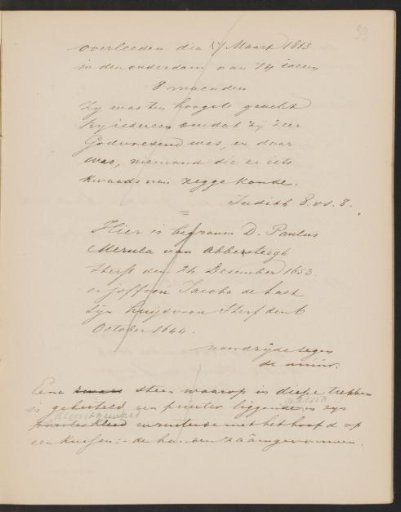 33
overleeden den 17 Maart 1813
in den ouderdom van 74 Jaren
8 maanden
Zy was ten hoogste geacht
by iedereen omdat zy zeer
Godvreesend was, en daar
was, niemand die er iets
kwaads van zegge konde.
Judith 8. vs. 8.
Hier is begraven D. Paulus
Merula van Abbersteegh
sterft den 24 December 1653
en joffren Jacoba de Last
syn Huysvrou sterf den 6
October 1644.
noordzyde tegen
de muur.
Eene steen waarop in diepe trekken
is gebeiteld een priester liggende in zyn
en rustende met het hoofd op
een kussen: de handen zaâmgevouwen.